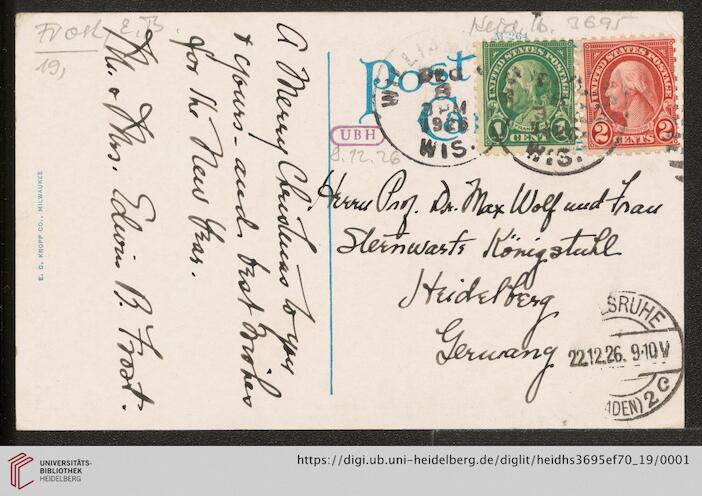 Frost, E. B.
19,
Heid. Hs. 3695
A Merry Christmas to you
& yours - and best wishes
for the New Year.
Mr. & Mrs. Edwin B. Frost.
E. C. KROPP CO., MILWAUKEE
Post
DEC
1926
WIS.
WIS.
UNITED STATES POSTAGE
1 CENT 1
UNITED STATES POSTAGE
2 CENTS 2
UBH
8.12.26
Herrn Prof. Dr. Max Wolf und Frau
Sternwarte Königstuhl
Heidelberg
Germany
LSRUHE
22.12.26. 9-10 V
(ADEN) 2 C
UNIVERSITÄTS-
BIBLIOTHEK
HEIDELBERG
https://digi.ub.uni-heidelberg.de/diglit/heidhs3695ef70_19/0001